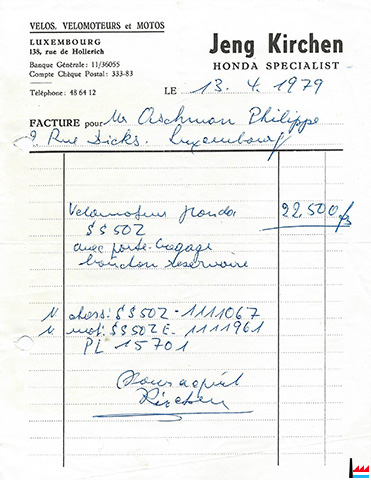 VELOS, VELOMOTEURS et MOTOS
LUXEMBOURG
138, rue de Hollerich
Banque Générale: 11/36055
Compte Chèque Postal: 333-83
Téléphone: 48 64 12
Jeng Kirchen
HONDA SPECIALIST
LE 13. 4. 1979
FACTURE pour Mr Aschman Philippe
9, Rue Dicks. Luxembourg
Velomoteur Honda 22.500 frs
SS50Z
avec porte-bagage
bouchon reservoire
N chass: SS50Z - 1111067
N mot: SS50ZE - 1111961
PL 15701
Pour acquit
Kirchen